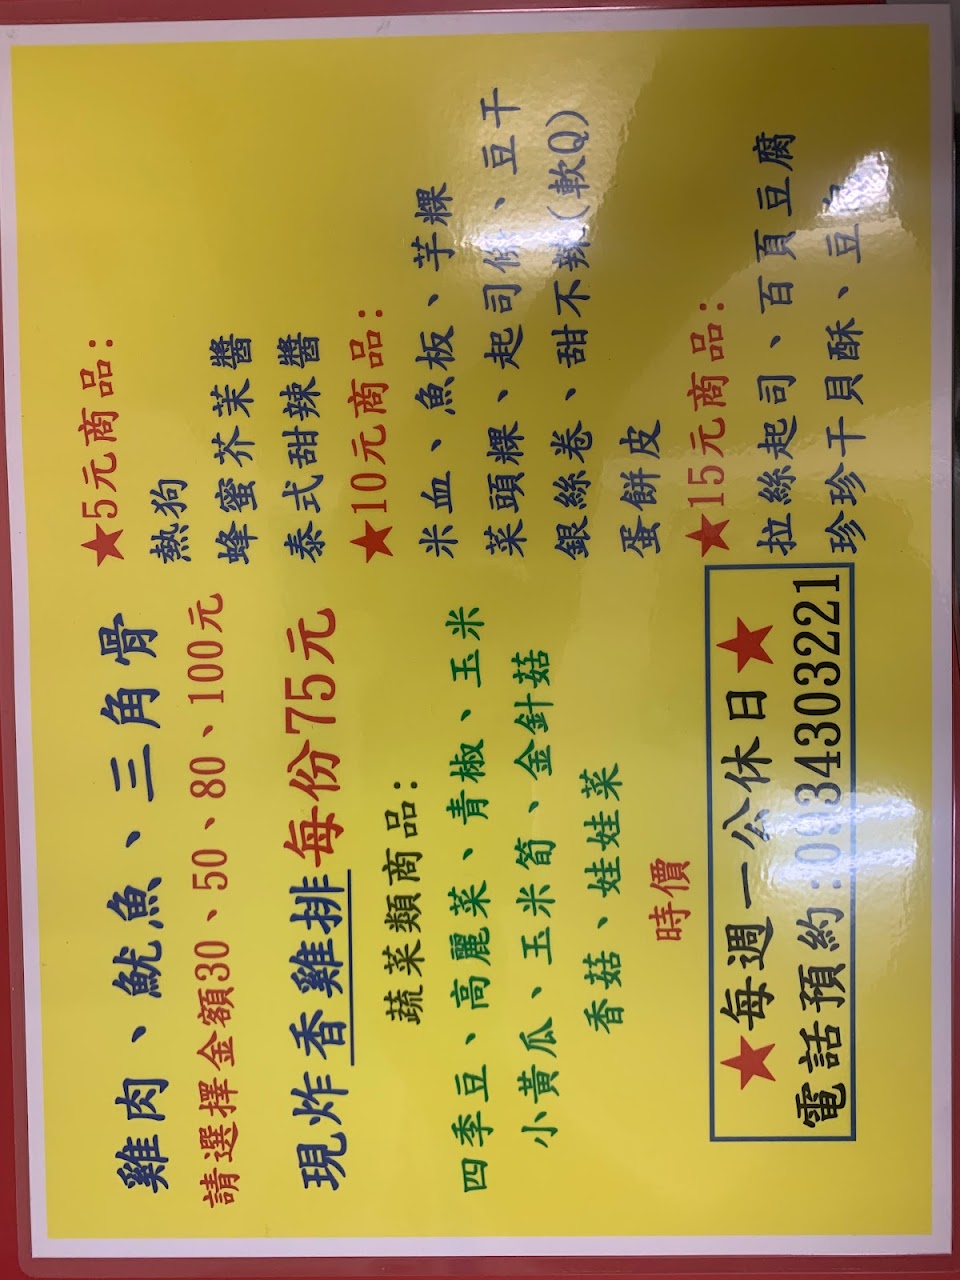 雞肉、魷魚、三角骨
請選擇金額30、50、80、100元
現炸香雞排每份75元
蔬菜類商品:
四季豆、高麗菜、青椒、玉米
小黃瓜、玉米筍、金針菇
香菇、娃娃菜
時價
★每週一公休日★
電話預約:0934303221
★5元商品:
熱狗
蜂蜜芥茉醬
泰式甜辣醬
★10元商品:
米血、魚板、芋粿
菜頭粿、起司條、豆干
銀絲卷、甜不辣(軟Q)
蛋餅皮
★15元商品:
拉絲起司、百頁豆腐
珍珍干貝酥、豆